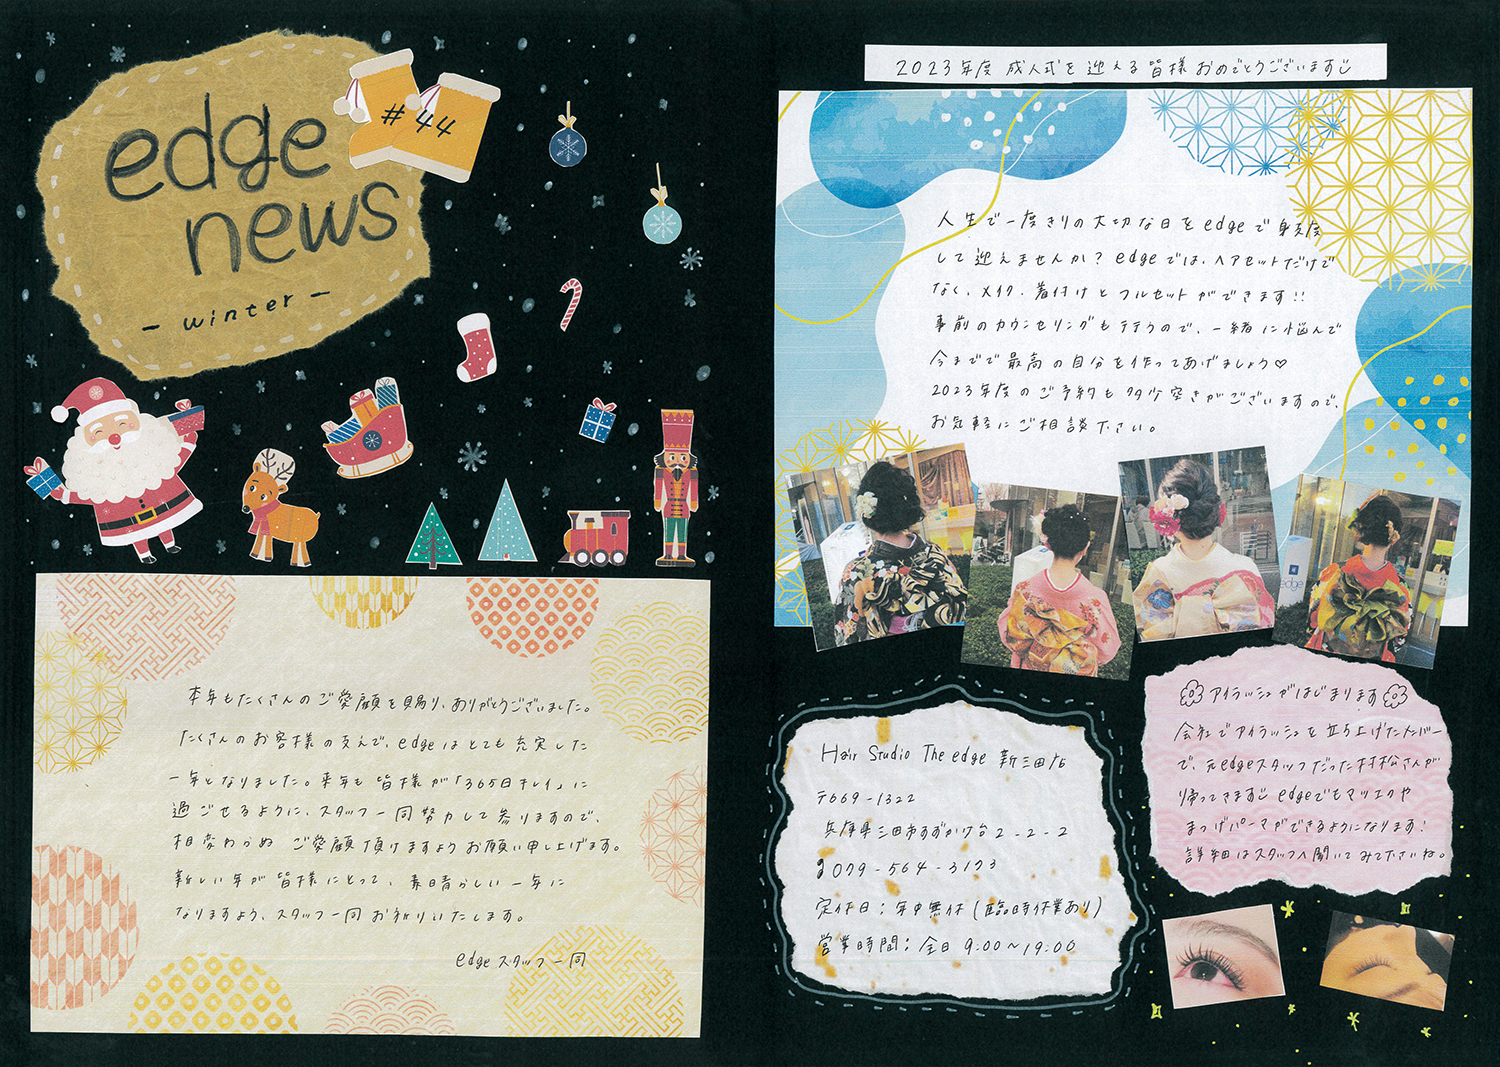 edge
news
- winter -
#44
本年もたくさんのご愛顧を賜り、ありがとうございました。
たくさんのお客様の支えで、edgeはとても充実した
一年となりました。来年も皆様が「365日キレイ」に
過ごせるように、スタッフ一同努力して参りますので、
相変わらぬご愛顧頂けますようお願い申し上げます。
新しい年が皆様にとって、素晴らしい一年に
なりますよう、スタッフ一同お祈りいたします。
edgeスタッフ一同
2023年度成人式を迎える皆様おめでとうございます
人生で一度きりの大切な日をedgeで身支度
して迎えませんか?edgeでは、ヘアセットだけで
なく、メイク、着付けとフルセットができます!!
事前のカウンセリングも行うので、一緒に悩んで
今までで最高の自分を作ってあげましょう♡
2023年度のご予約も多少空きがございますので、
お気軽にご相談下さい。
edge
Hair Studio The edge 新三田店
〒669-1322
兵庫県三田市すずかけ台2-2-2
079-564-3173
定休日:年中無休(臨時休業あり)
営業時間:全日 9:00~19:00
アイラッシュがはじまります
会社でアイラッシュを立ち上げたメンバー
で、元edgeスタッフだった村松さんが
帰ってきます edgeでもマツエクや
まつげパーマができるようになります!
詳細はスタッフへ聞いてみて下さいね。